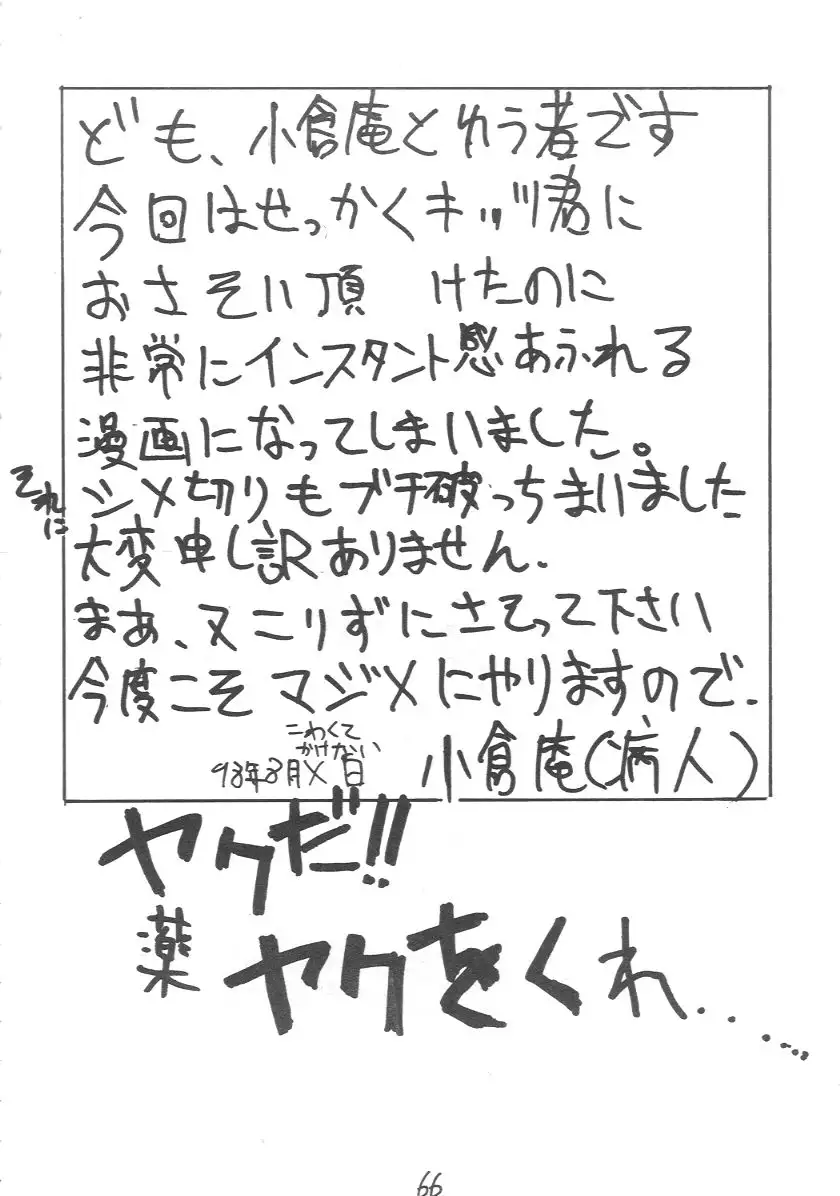 ども、小倉庵とゆう者です
今回はせっかくキッヅ君に
おさそい頂 けたのに
非常にインスタント感あふれる
漫画になってしまいました。
それに
シメ切りもブチ破っちまいました
大変申し訳ありません.
まあ、又こりずにさそって下さい
今度こそマジメにやりますので.
こわくて
かけない
98年8月×日
小倉庵(病人)
ヤクだ!!
薬 ヤクをくれ........
66